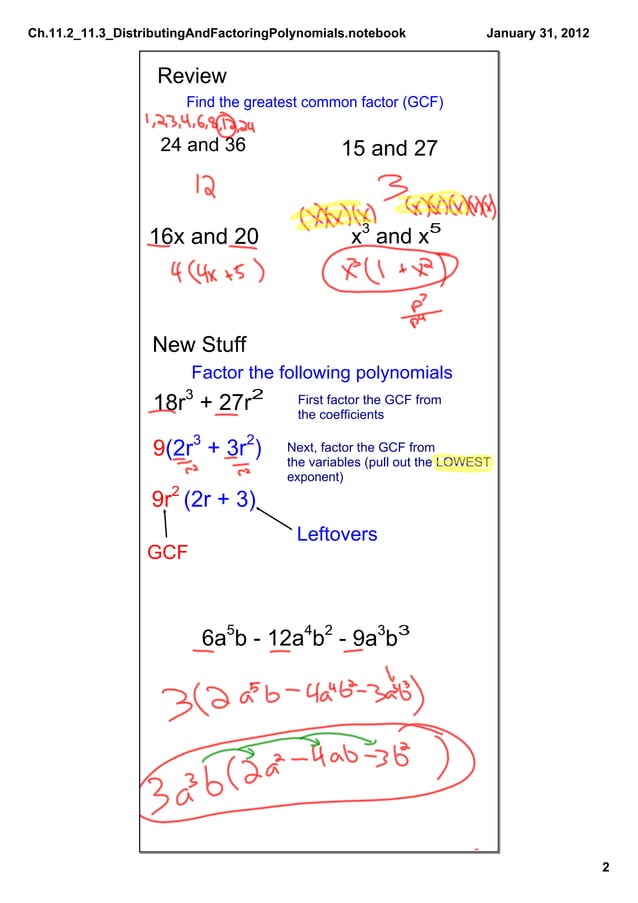 Ch.11.2_11.3_DistributingAndFactoringPolynomials.notebook
January 31, 2012
Review
Find the greatest common factor (GCF)
1,2,3,4,6,8,12,24
24 and 36
15 and 27
12
3
(x)(x)(x)
(x)(x)(x)(x)(x)
16x and 20
x³ and x⁵
4(4x+5)
x³(1 + x²)
New Stuff
Factor the following polynomials
18r³ + 27r²
First factor the GCF from
the coefficients
9(2r³ + 3r²)
r² r²
Next, factor the GCF from
the variables (pull out the LOWEST
exponent)
9r² (2r + 3)
Leftovers
GCF
6a⁵b - 12a⁴b² - 9a³b³
3(2a⁵b - 4a⁴b² - 3a³b³)
3a³b(2a² - 4ab - 3b²)
2